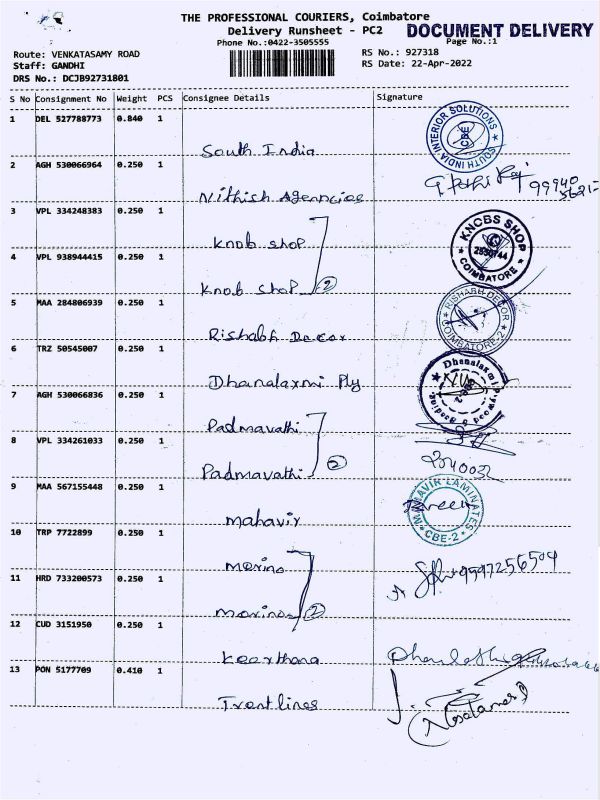 THE PROFESSIONAL COURIERS, Coimbatore
Delivery Runsheet - PC2
DOCUMENT DELIVERY
Phone No.:0422-3505555
Page No.:1
Route: VENKATASAMY ROAD
RS No.: 927318
Staff: GANDHI
RS Date: 22-Apr-2022
DRS No.: DCJB92731801
S No Consignment No Weight PCS Consignee Details Signature
1 DEL 527788773 0.840 1
South India
SOUTH INDIA INTERIOR SOLUTIONS CBE
2 AGH 530066964 0.250 1
Nithish Agencies
99940
3 VPL 334248383 0.250 1
Knob shop
KNOBS SHOP COIMBATORE
4 VPL 938944415 0.250 1
Knob shop 2
5 MAA 284806939 0.250 1
Rishabh Decor
RISHABH DECOR COIMBATORE-2
6 TRZ 50545007 0.250 1
Dhanalaxmi Ply
Dhanalaxmi
7 AGH 530066836 0.250 1
Padmavathi
8 VPL 334261033 0.250 1
Padmavathi 2
9 MAA 567155448 0.250 1
mahavir
MAHAVIR LAMINATES CBE-2
10 TRP 7722899 0.250 1
merino
9597256504
11 HRD 733200573 0.250 1
merino 2
12 CUD 3151950 0.250 1
Keerthana
13 PON 5177709 0.410 1
Trentlines